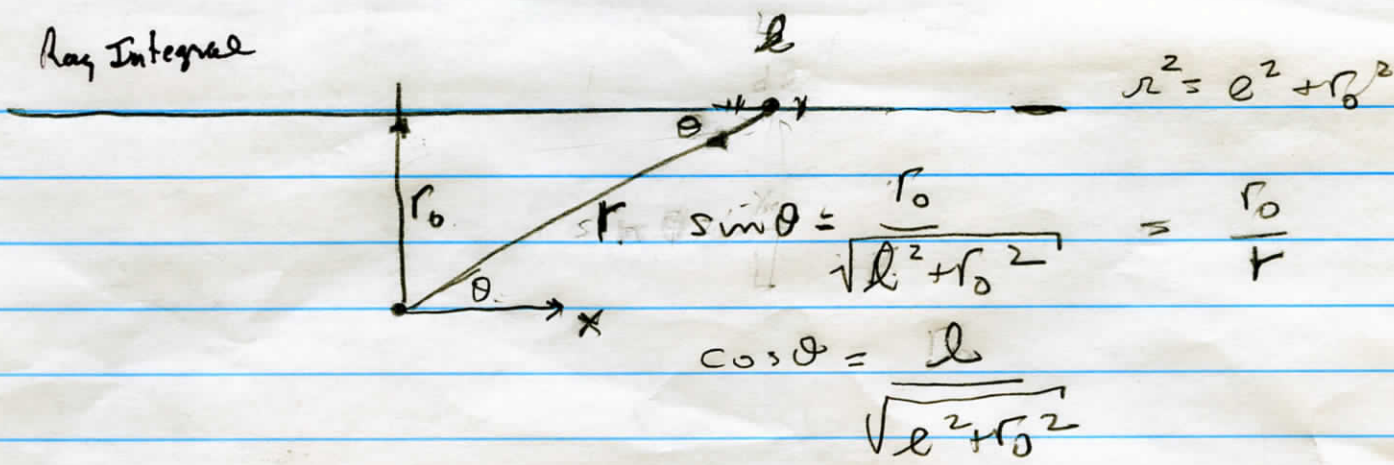 Ray Integral
l
r² = l² + r₀²
θ
r₀
r
sin θ = r₀ / √(l² + r₀²) = r₀ / r
θ
x
cos θ = l / √(l² + r₀²)